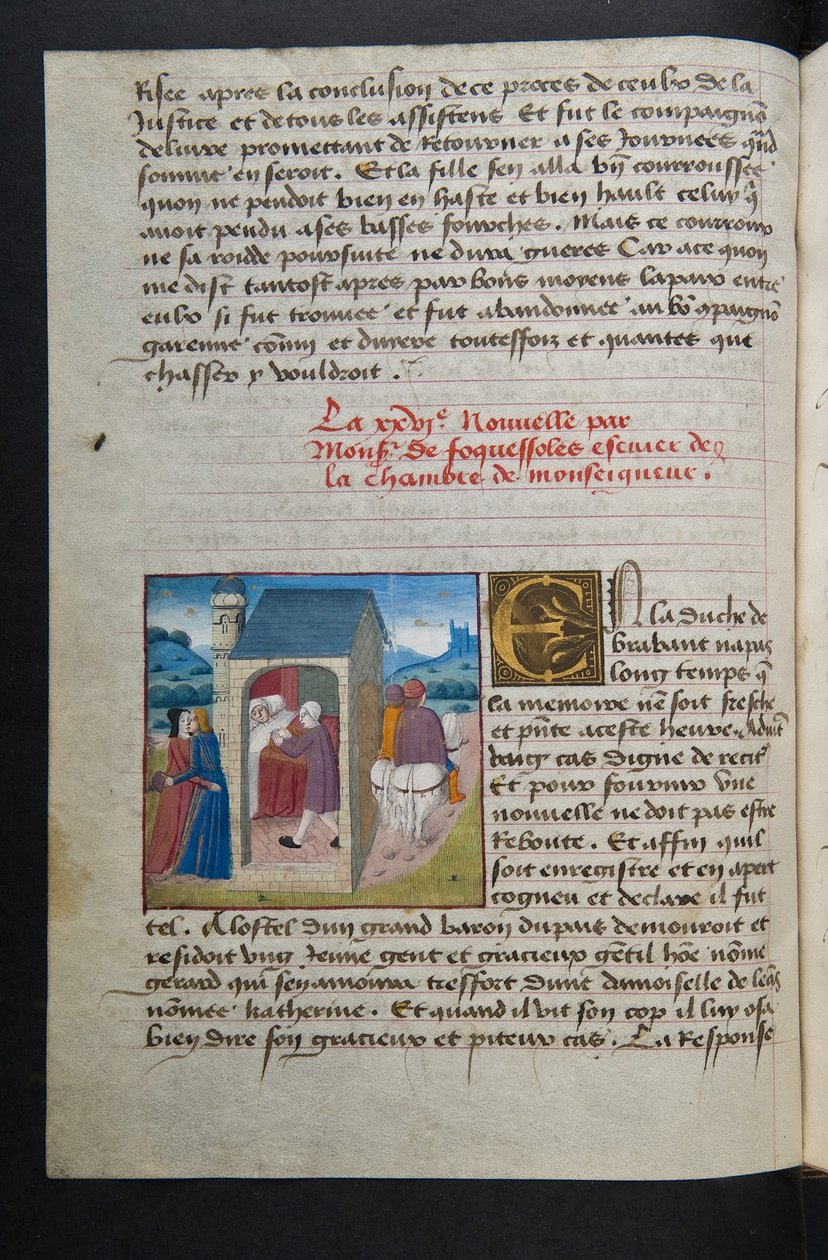 Risee apres la conclusion de ce proces de ceulx de la
Justice et de tous les assistens Et fut le compaignõ
deliure promettant de Retourner a ses Journees qñd
sommé en seroit. Et la fille sen alla bñ courroussee
quon ne pendoit bien en haste et bien hault celuy q̃
auoit pendu a ses basses fourches. Mais ce courroux
ne sa roidde poursuite ne dura gueres Car a ce quon
me dist tantost apres par bons moyens la paix entre
eulx si fut trouuee et fut abandonnee au bõ ꝯpaignõ
garenne cõnin et duyere touteffoiz et quantes que
chasser y vouldroit.
La xxvjᵉ Nouuelle par
Monsʳ. de foquessoles escuier de
la chambre de monseigneur.
En la duche de
brabant na pas
long temps q̃
la memoire nẽ soit fresche
et pñte a ceste heure. Aduĩt
vung cas digne de recit
Et pour fournir vne
nouuelle ne doit pas estre
Reboute. Et affin quil
soit enregistre et en apert
cogneu et declaré il fut
tel. A lostel dun grand baron du pais demouroit et
residoit vng Jeune gent et gracieux gẽtil hõe nõme
gerard qui sen amoura tresfort dune damoiselle de leãs
nõmee katherine. Et quand il vit son cop il luy osa
bien dire son gracieux et piteux cas. La Response